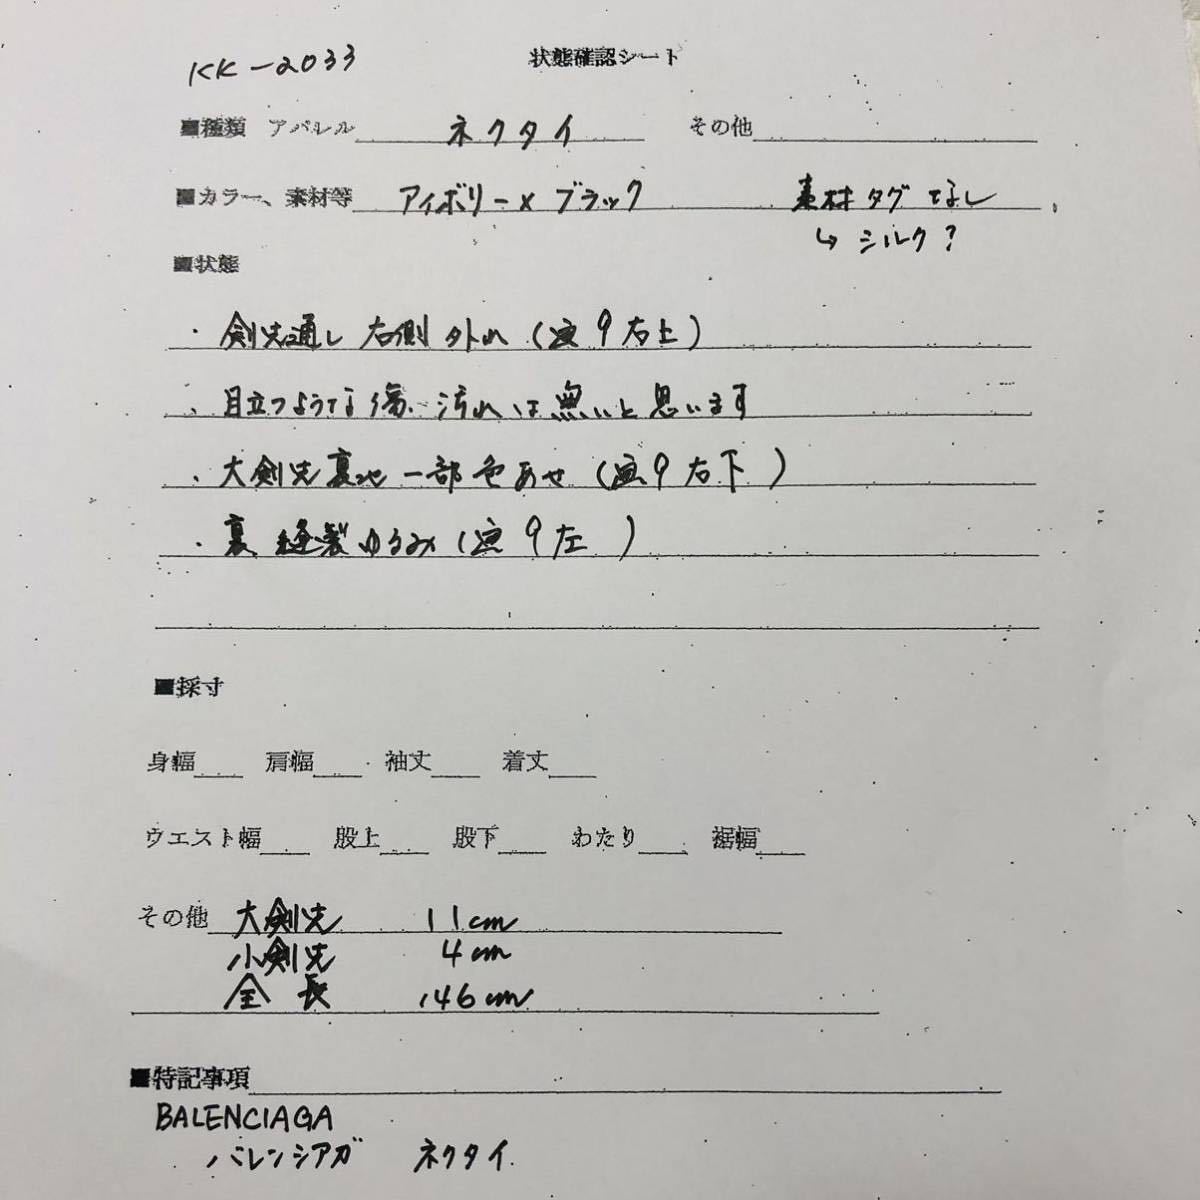 KK-2033
状態確認シート
■種類 アパレル ネクタイ その他
■カラー、素材等 アイボリー×ブラック 素材タグなし
↳ シルク?
■状態
・剣先通し 右側 外れ (画9右上)
・目立つような傷、汚れは無いと思います
・大剣先裏地一部色あせ (画9右下)
・裏 縫製ゆるみ (画9左)
■採寸
身幅 肩幅 袖丈 着丈
ウエスト幅 股上 股下 わたり 裾幅
その他 大剣先 11cm
小剣先 4cm
全長 146cm
■特記事項
BALENCIAGA
バレンシアガ ネクタイ